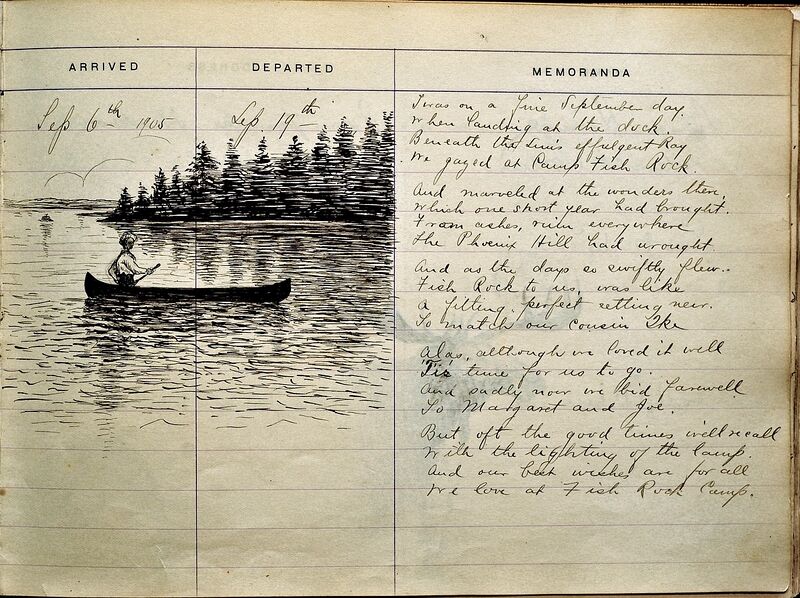 ARRIVED
DEPARTED
MEMORANDA
Sep 6th 1905
Sep. 19th
Twas on a fine September day.
When landing at the dock.
Beneath the Sun's effulgent Ray
We gazed at Camp Fish Rock.
And marveled at the wonders there,
Which one short year had brought.
From ashes, ruin everywhere
The Phoenix Hill had wrought.
And as the days so swiftly flew..
Fish Rock to us, was like
A fitting, perfect setting new.
To match our cousin Ike
Alas, although we loved it well
Tis time for us to go.
And sadly now we bid farewell
To Margaret and Joe.
But oft the good times we'll recall
With the lighting of the lamp.
And our best wishes are for all
We love at Fish Rock Camp.